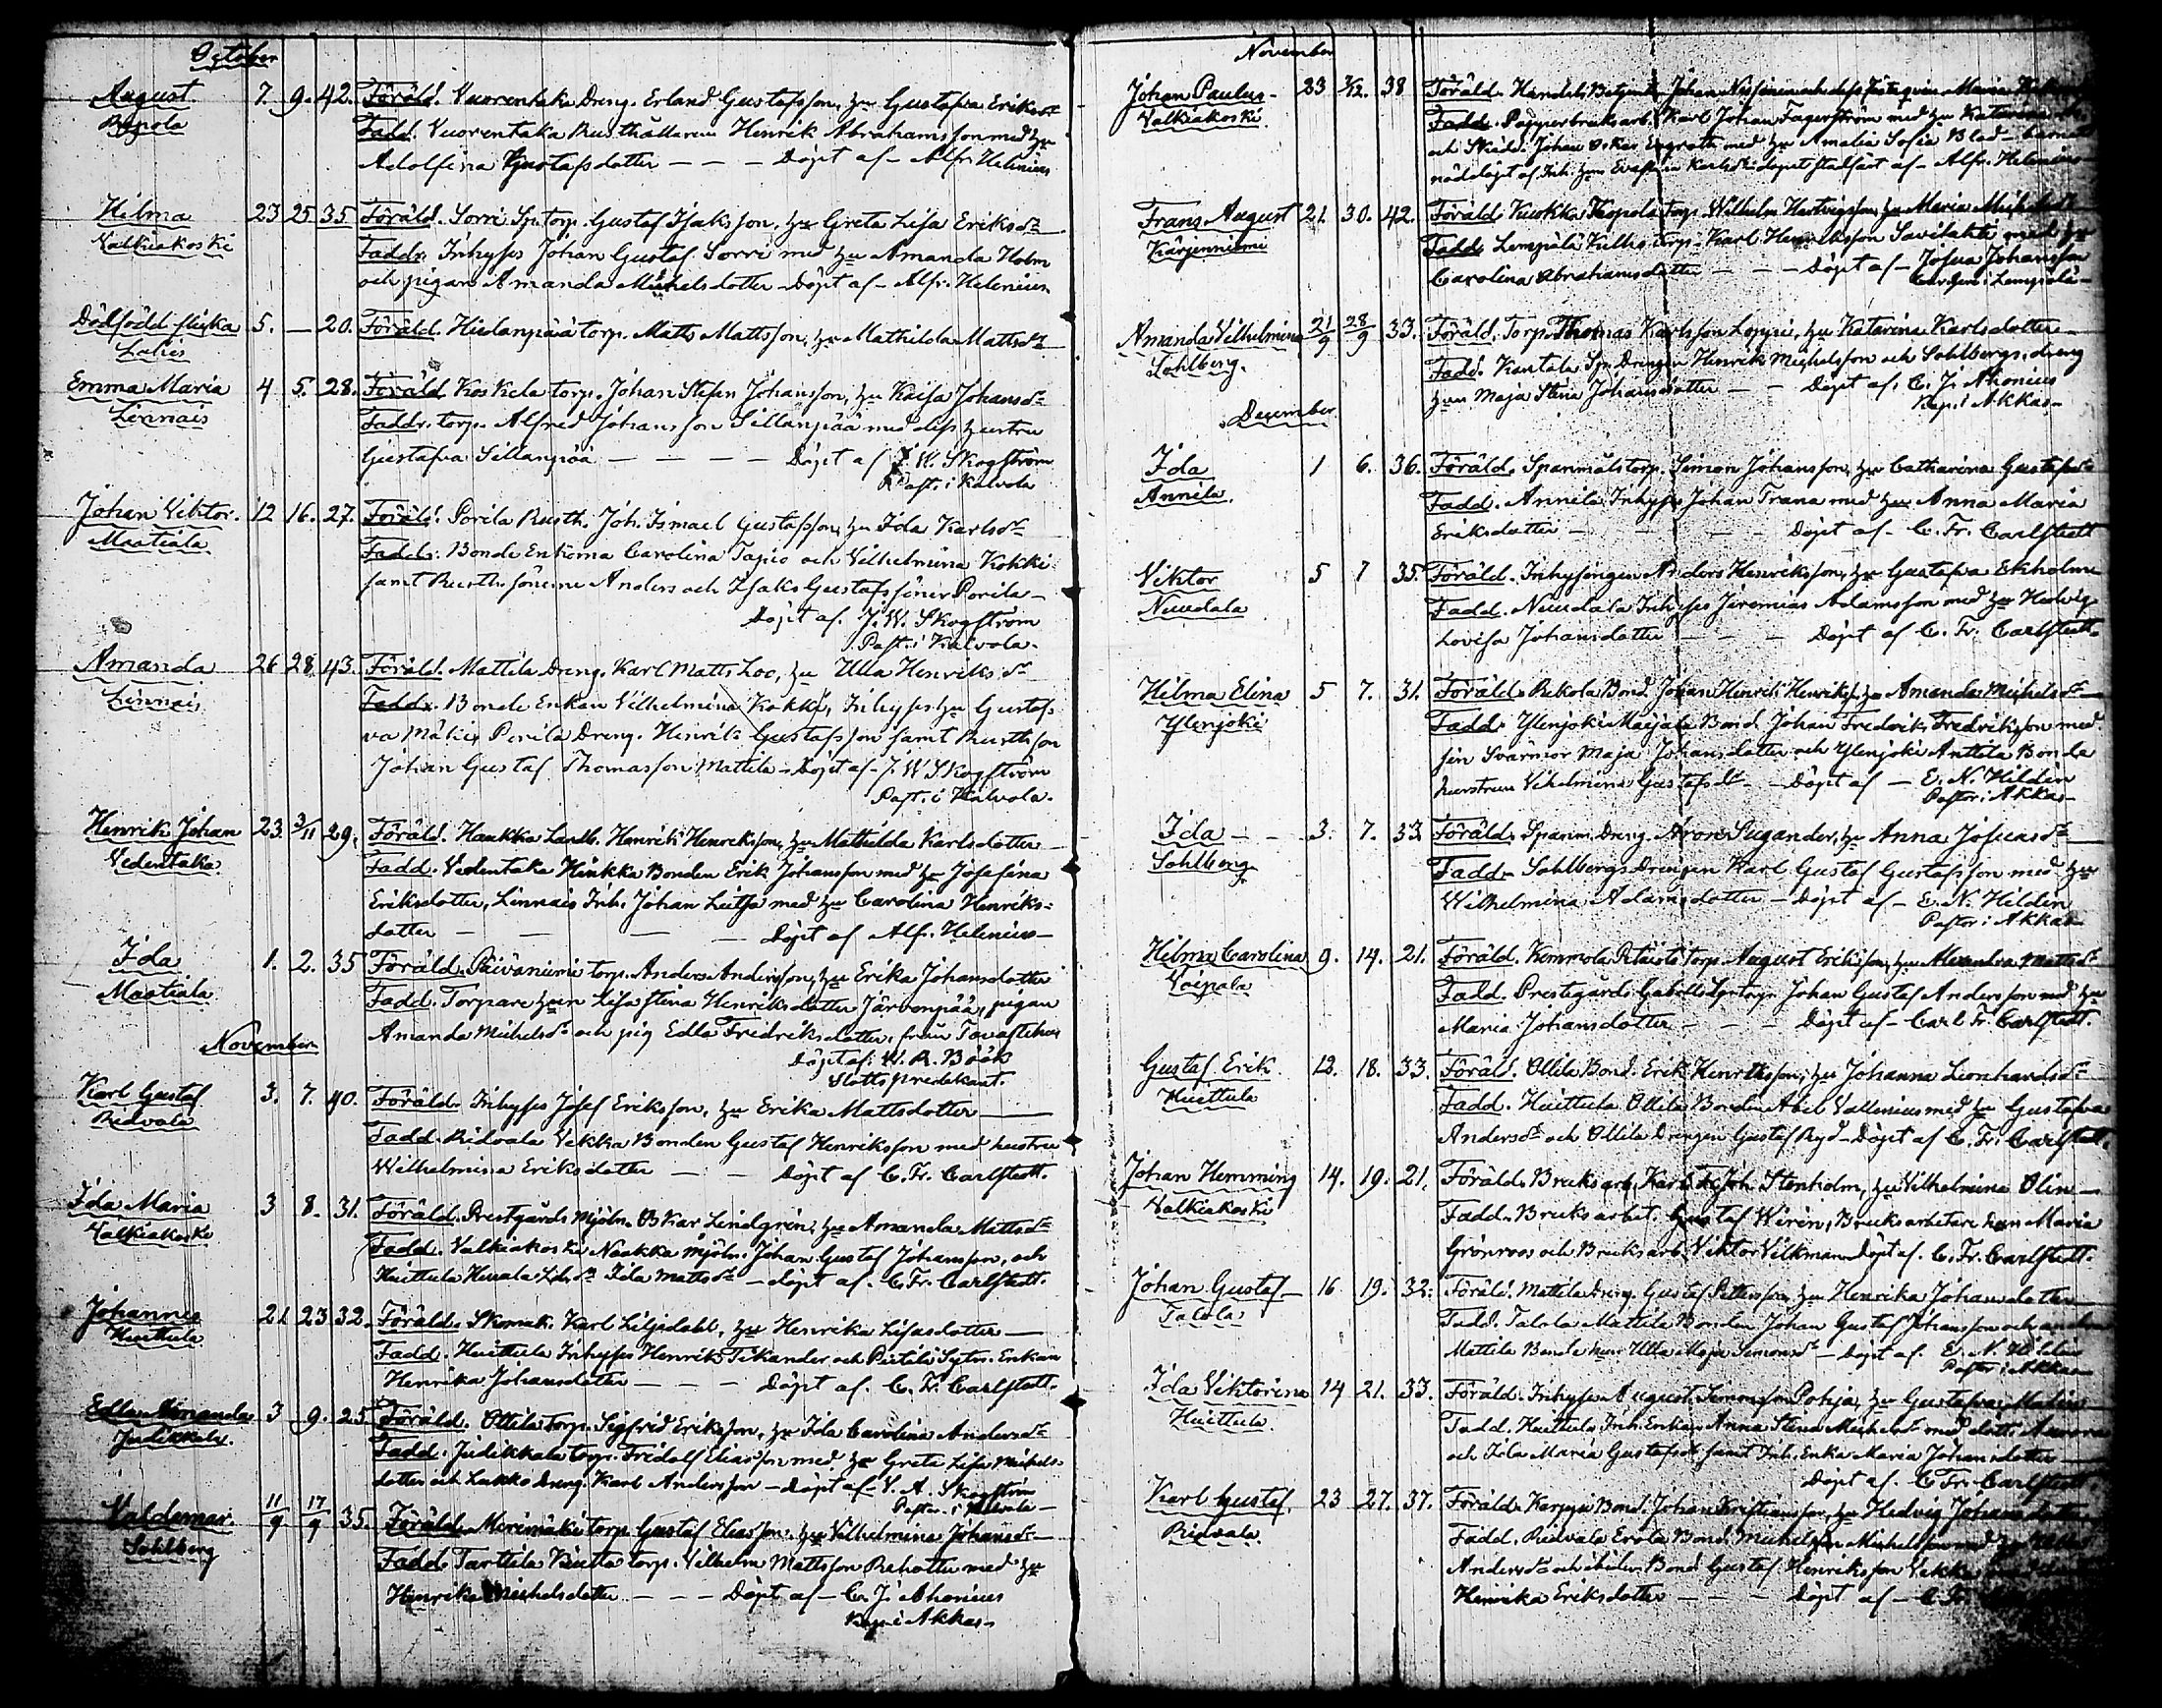 October
August 7. 9. 42. Föräld. Vuorentaka Dreng. Erland Gustafsson, hu Gustafva Eriksdr
Repola Fadd. Vuorentaka Rusthållaren Henrik Abrahamsson med hu
Adolfina Gustafsdotter — — — Döpt af — Alfr. Helenius
Hilma 23 25 35 Föräld. Sorri Sp. torp. Gustaf Isaksson, hu Greta Lisa Eriksdr
Valkiakoski Faddr. Inhyses Johan Gustaf Sorri med hu Amanda Holm
och pigan Amanda Michelsdotter — Döpt af — Alfr. Helenius
Dödfödd flicka 5. — 20. Föräld. Hiidanpää torp. Matts Mattsson, hu Mathilda Mattsdr
Lahis
Emma Maria 4 5. 28. Föräld. Koskela torp. Johan Stefan Johansson, hu Kaisa Johansdr
Linnais Faddr. torp. Alfred Johansson Sillanpää med dess hustru
Gustafva Sillanpää — — — — Döpt af J. W. Skogström
Past. i Kalvola
Johan Viktor. 12 16. 27. Föräld. Porila Rusth. Joh. Ismael Gustafsson, hu Ida Karlsdr
Maatiala Faddr. Bonde Enkorna Carolina Tapio och Vilhelmina Kokki
samt Rusth. sönerne Anders och Isaks Gustafssöner Porila —
Döpt af. J. W. Skogström
Past. i Kalvola.
Amanda 26 28. 43. Föräld. Mattila Dreng. Karl Matts Loo, hu Ulla Henriksdr
Linnais Faddr. Bonde Enkan Vilhelmina Kokki, Inhyses hu Gustaf-
va Mäki, Porila Dreng. Henrik Gustafsson samt Rusthson
Johan Gustaf Thomasson Mattila — Döpt af — J. W. Skogström
Past. i Kalvola.
Henrik Johan 23. 3/11 29. Föräld. Haukka Landb. Henrik Henriksson, hu Mathilda Karlsdotter —
Vedentaka Fadd. Vedentaka Heikka Bonden Erik Johansson med hu Josefina
Eriksdotter, Linnais Inh. Johan Leitsa med hu Carolina Henriks-
dotter — — — — Döpt af Alfr. Helenius —
Ida 1. 2. 35 Föräld. Päiväniemi torp. Anders Andersson, hu Erika Johansdotter
Maatiala Fadd. Torpare hun Lisa Stina Henriksdotter Järvenpää, pigan
Amanda Michelsdr och pig Edla Fredriksdotter, från Tavastehus
Döpt af. W. R. Bääk
Slottspredikant.
November
Karl Gustaf 3. 7. 40. Föräld. Inhyses Josef Eriksson, hu Erika Mattsdotter —
Ridvala Fadd. Ridvala Vekka Bonden Gustaf Henriksson med hustru
Wilhelmina Eriksdotter — — Döpt af C. Fr. Carlstedt.
Ida Maria 3 8. 31. Föräld. Prestgårds Mjöln. Oskar Lindgren, hu Amanda Mattsdr
Valkiakoski Fadd. Valkiakoski Naakka Mjöln. Johan Gustaf Johansson, och
Huittula Ida Mattsdr — Döpt af. C. Fr. Carlstedt.
Johannes 21 23 32. Föräld. Skomak. Karl Liljedahl, hu Henrika Lisasdotter —
Huittula Fadd. Huittula Inhyses Henrik Tikander och Pietilä Sytn. Enkan
Henrika Johansdotter — — — Döpt af. C. Fr. Carlstedt.
Edla Amanda 3 9. 25. Föräld. Ollila torp. Sigfrid Eriksson, hu Ida Carolina Andersdr
Judikkala. Fadd. Judikkala torp. Fridolf Eliasson med hu Greta Lisa Michels-
dotter och Lukko Dreng. Karl Andersson — Döpt af — V. A. Skogström
Pastor. i Kalvola —
Valdemar. 11/9 17/9 35. Föräld. Merimäki torp. Gustaf Eliasson, hu Vilhelmina Johansdr —
Sohlberg Fadd. Tarttila torp. Vilhelm Mattsson med hu
Henrika Michelsdotter — — — Döpt af — C. J. Ahonius
Kap. i Akkas —
November
Johan Paulus — 23 2/12. 38 Föräld. Handels Betjent Johan Nissinen och dess fästeqvin. Maria
Valkiakoski. Fadd. Papperbruksarb. Karl Johan Fagerström med hu Katarina
och Skräd. Johan Oskar Engroth med hu Amalia Sofia Blad — barnet
nöddöpt af Inh. hun Eva Karlsdr dopet stadfäst af — Alfr. Helenius
Frans August 21. 30. 42. Föräld. Kuokka torp. Wilhelm Hartvigsson, hu Maria Michelsdr
Kärjenniemi Fadd. Lempälä Kullis torp. Karl Henriksson Savilahti med hu
Carolina Abrahamsdotter — — — Döpt af — Josua Johansson
i Lempälä —
Amanda Vilhelmina 21/9 28/9 33. Föräld. Torp. Thomas Karlsson Loppi, hu Katarina Karlsdotter —
Sohlberg. Fadd. Sp. Drengen Henrik Michelsson och Sohlbergs dreng
hun Maja Stina Johansdotter — — Döpt af. C. J. Ahonius
Kap. i Akkas —
December
Ida 1 6. 36. Föräld. Spanmålstorp. Simon Johansson, hu Catharina Gustafsdr
Annila. Fadd. Annila Inhyses Johan Trana med hu Anna Maria
Eriksdotter — — — Döpt af — C. Fr. Carlstedt
Viktor 5 7 35. Föräld. Inhysingen Anders Henriksson, hu Gustafva Ekholm
Niuudala Fadd. Niuudala Inhyses Jeremias Adamsson med hu Hedvig
Lovisa Johansdotter — — — Döpt af C. Fr. Carlstedt.
Hilma Elina 5 7. 31. Föräld. Rekola Bond. Johan Henrik Henrikss. hu Amanda Michelsdr —
Ylenjoki Fadd. Ylenjoki Maijala Bond. Johan Fredrik Fredriksson med
sin Svärmor Maja Johansdotter och Ylenjoki Anttila Bonde
hustrun Vilhelmina Gustafsdr — Döpt af — E. N. Hildén
Pastor i Akkas —
Ida — 3. 7. 33 Föräld. Spanm. Dreng. Aron Sugander, hu Anna Josuasdr —
Sohlberg Fadd. Sohlbergs Drengen Karl Gustaf Gustafsson med hu
Wilhelmina Adamsdotter — Döpt af — E. N. Hildén
Pastor i Akkas
Hilma Carolina 9. 14. 21. Föräld. Kemmola torp. August Eriksson, hu Alexandra Mattsdr
Voipala Fadd. Prestegårds torp. Johan Gustaf Andersson med hu
Maria Johansdotter — — — Döpt af — Carl Fr. Carlstedt.
Gustaf Erik. 12. 18. 33. Föräld. Ollila Bond. Erik Henriksson, hu Johanna Leonhardsdr
Huittula Fadd. Huittula Ollila Bonden Abel Vallenius med hu Gustafva
Andersdr och Ollila Drengen Gustaf Ryd — Döpt af C. Fr. Carlstedt.
Johan Hemming 14. 19. 21. Föräld. Bruksarb. Karl Fr. Joh. Stenholm, hu Vilhelmina Olin —
Valkiakoski Fadd. Bruksarbet. Gustaf Wirén, Bruksarbetare hun Maria
Grönroos och Bruksarb. Viktor Vilkman Döpt af. C. Fr. Carlstedt.
Johan Gustaf — 16 19. 32. Föräld. Mattila Dreng. Gustaf Pettersson, hu Henrika Johansdotter
Talola Fadd. Talola Mattila Bonden Johan Gustaf Johansson och
Mattila Bonde hun Ulla Maja Simonsdr — Döpt af. E. N. Hildén
Pastor i Akkas
Ida Viktorina 14 21. 33. Föräld. Inhyses August Simonsson Pohja, hu Gustafva Malin
Huittula Fadd. Huittula Inh. Enkan Anna Stina Michelsdr med dott. Aurora
och Ida Maria Gustafsdr samt Inh. Enka Maria Johansdotter
Döpt af. C. Fr. Carlstedt
Karl Gustaf. 23 27. 37. Föräld. Karppi Bond. Johan Kristiansson, hu Hedvig Johansdotter
Ridvala. Fadd. Ridvala Erola Bond. Michel Michelsson med hu Ulla
Andersdr och Bond. Gustaf Henriksson Vekka
Henrika Eriksdotter — — — Döpt af — C. Fr.